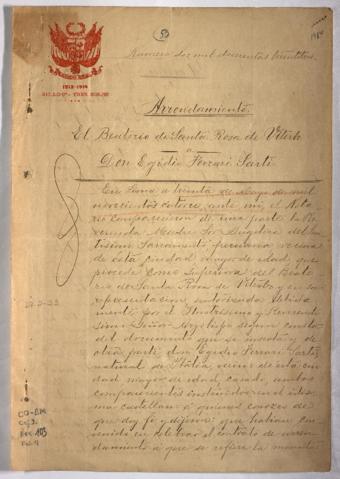 50
Número dos mil doscientos treintitres
1913-1914
SELLO 6º - TRES SOLES
Arrendamiento.
El Beaterio de Santa Rosa de Viterbo
a
Don Egidio Ferrari Sarti
En Lima a treinta de Mayo de mil
novecientos catorce, ante mi el Nota
rio comparecieron de una parte la Re
verenda Madre Sor Angelica del San
tisimo Sacramento, peruana, vecina
de esta ciudad mayor de edad que
procede como Superiora del Beate
rio de Santa Rosa de Viterbo y en su
representacion, autorizada debida
mente por el Ilustrisimo y Reverendi
simo Señor Arzobispo segun consta
del documento que se inserta; y de
otra parte don Egidio Ferrari Sarti,
natural de Italia, vecino de esta ciu
dad mayor de edad, casado, ambos
comparecientes instruidos en el idio
ma castellano á quienes conozco de
que doy fe y dijeron: que habian con
venido en celebrar el contrato de arren
damiento a que se refiere la minuta